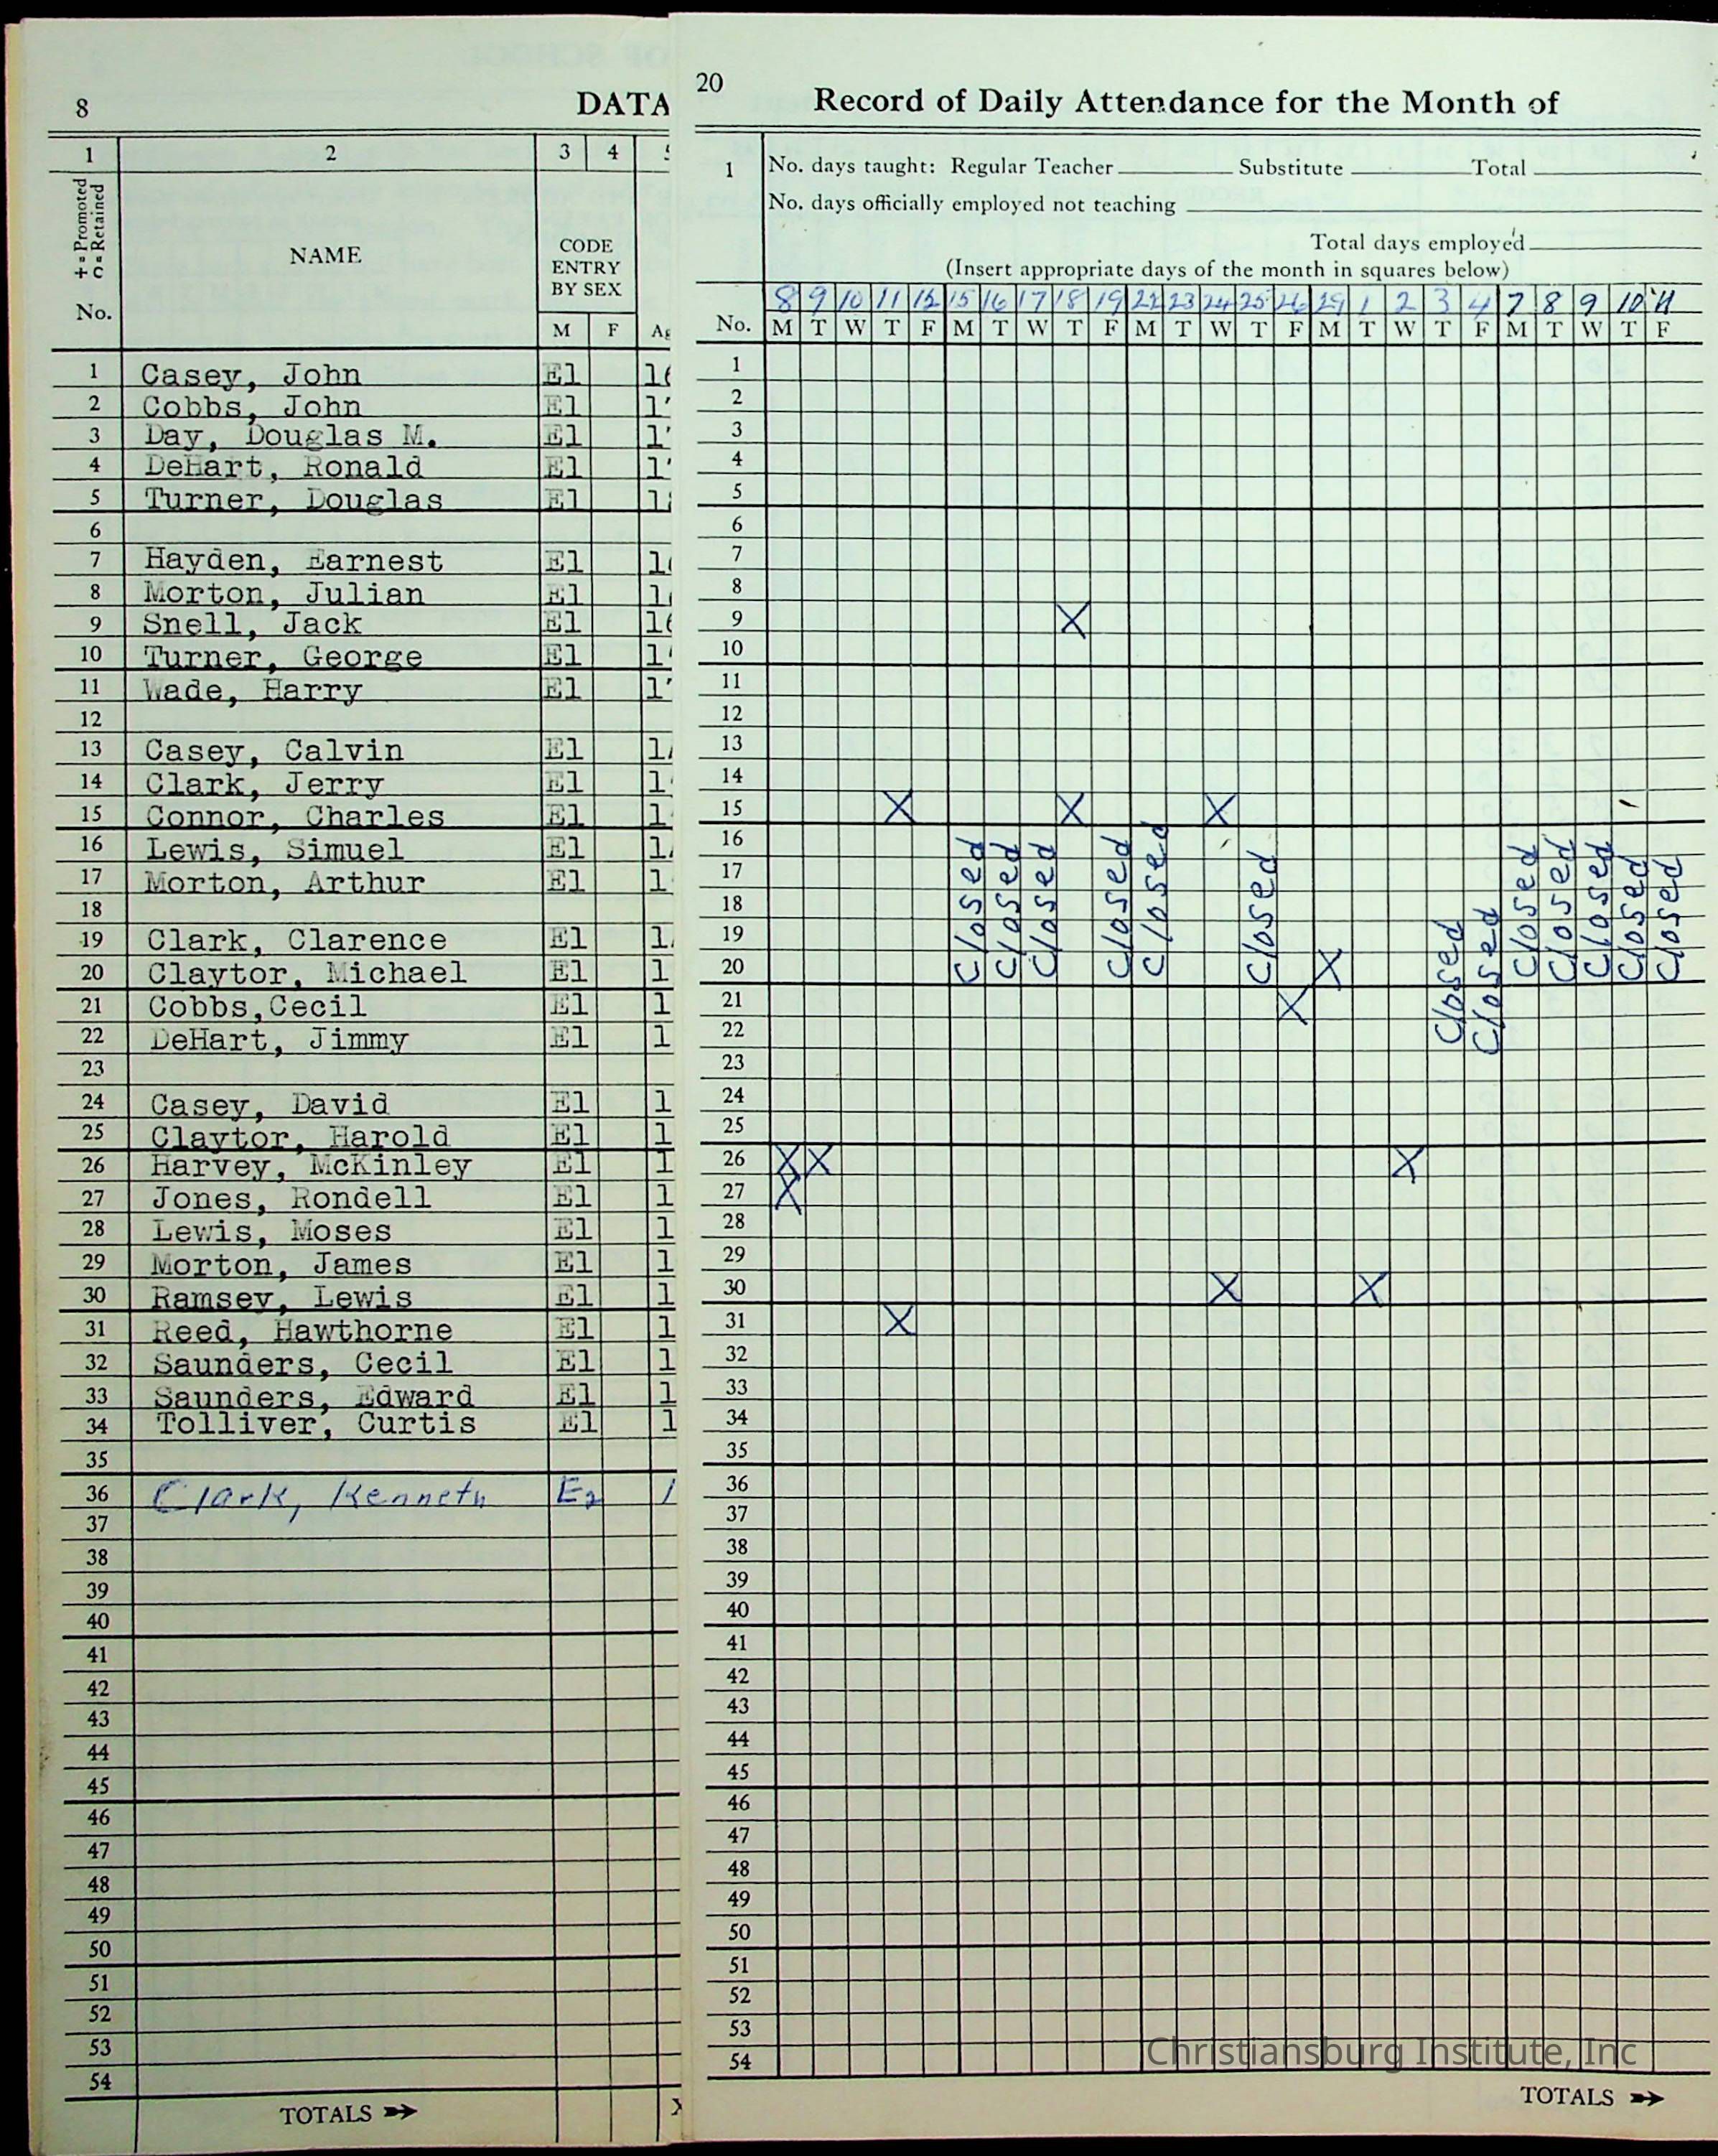 8
DATA
1 2 3 4
+ = Promoted
O = Retained
No.
NAME
CODE
ENTRY
BY SEX
M F
1 Casey, John El
2 Cobbs, John El
3 Day, Douglas M. El
4 DeHart, Ronald El
5 Turner, Douglas El
6
7 Hayden, Earnest El
8 Morton, Julian El
9 Snell, Jack El
10 Turner, George El
11 Wade, Harry El
12
13 Casey, Calvin El
14 Clark, Jerry El
15 Connor, Charles El
16 Lewis, Simuel El
17 Morton, Arthur El
18
19 Clark, Clarence El
20 Claytor, Michael El
21 Cobbs,Cecil El
22 DeHart, Jimmy El
23
24 Casey, David El
25 Claytor, Harold El
26 Harvey, McKinley El
27 Jones, Rondell El
28 Lewis, Moses El
29 Morton, James El
30 Ramsey, Lewis El
31 Reed, Hawthorne El
32 Saunders, Cecil El
33 Saunders, Edward El
34 Tolliver, Curtis El
35
36 Clark, Kenneth E2
37
38
39
40
41
42
43
44
45
46
47
48
49
50
51
52
53
54
TOTALS
20
Record of Daily Attendance for the Month of
1 No. days taught: Regular Teacher Substitute Total
No. days officially employed not teaching
Total days employed
(Insert appropriate days of the month in squares below)
8 9 10 11 12 15 16 17 18 19 22 23 24 25 26 29 1 2 3 4 7 8 9 10 11
No. M T W T F M T W T F M T W T F M T W T F M T W T F
1
2
3
4
5
6
7
8
9 X
10
11
12
13
14
15 X X X
16
17
18
19
20 X
Closed Closed Closed Closed Closed Closed Closed Closed Closed Closed Closed Closed Closed
21 X
22
23
24
25
26 X X X
27 X
28
29
30 X X
31 X
32
33
34
35
36
37
38
39
40
41
42
43
44
45
46
47
48
49
50
51
52
53
54
Christiansburg Institute, Inc
TOTALS